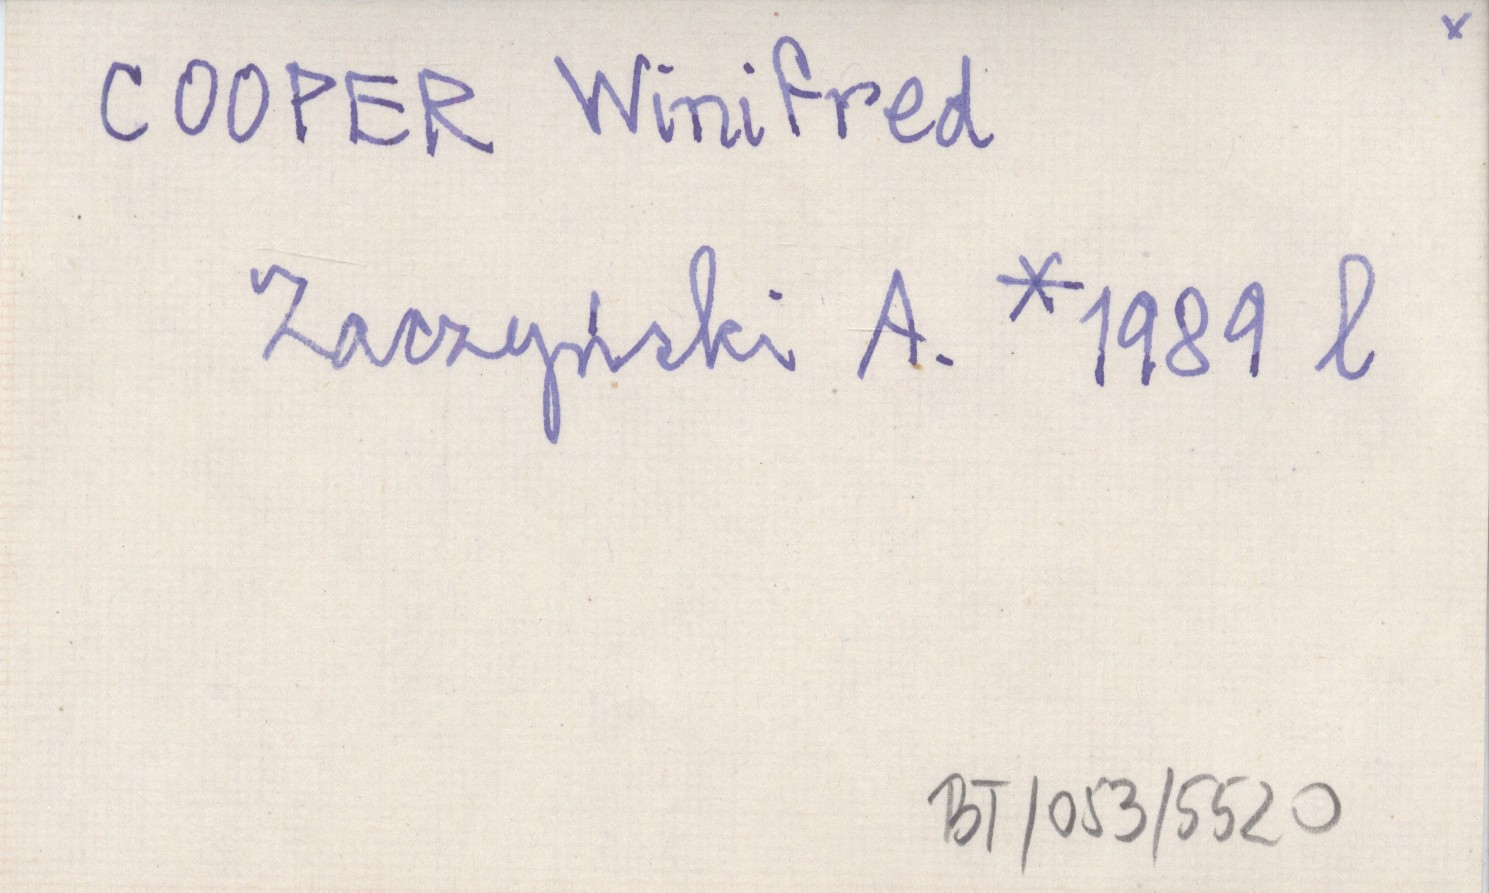 x
COOPER Winifred
Zaczyński A. *1989 l
BT/053/5520